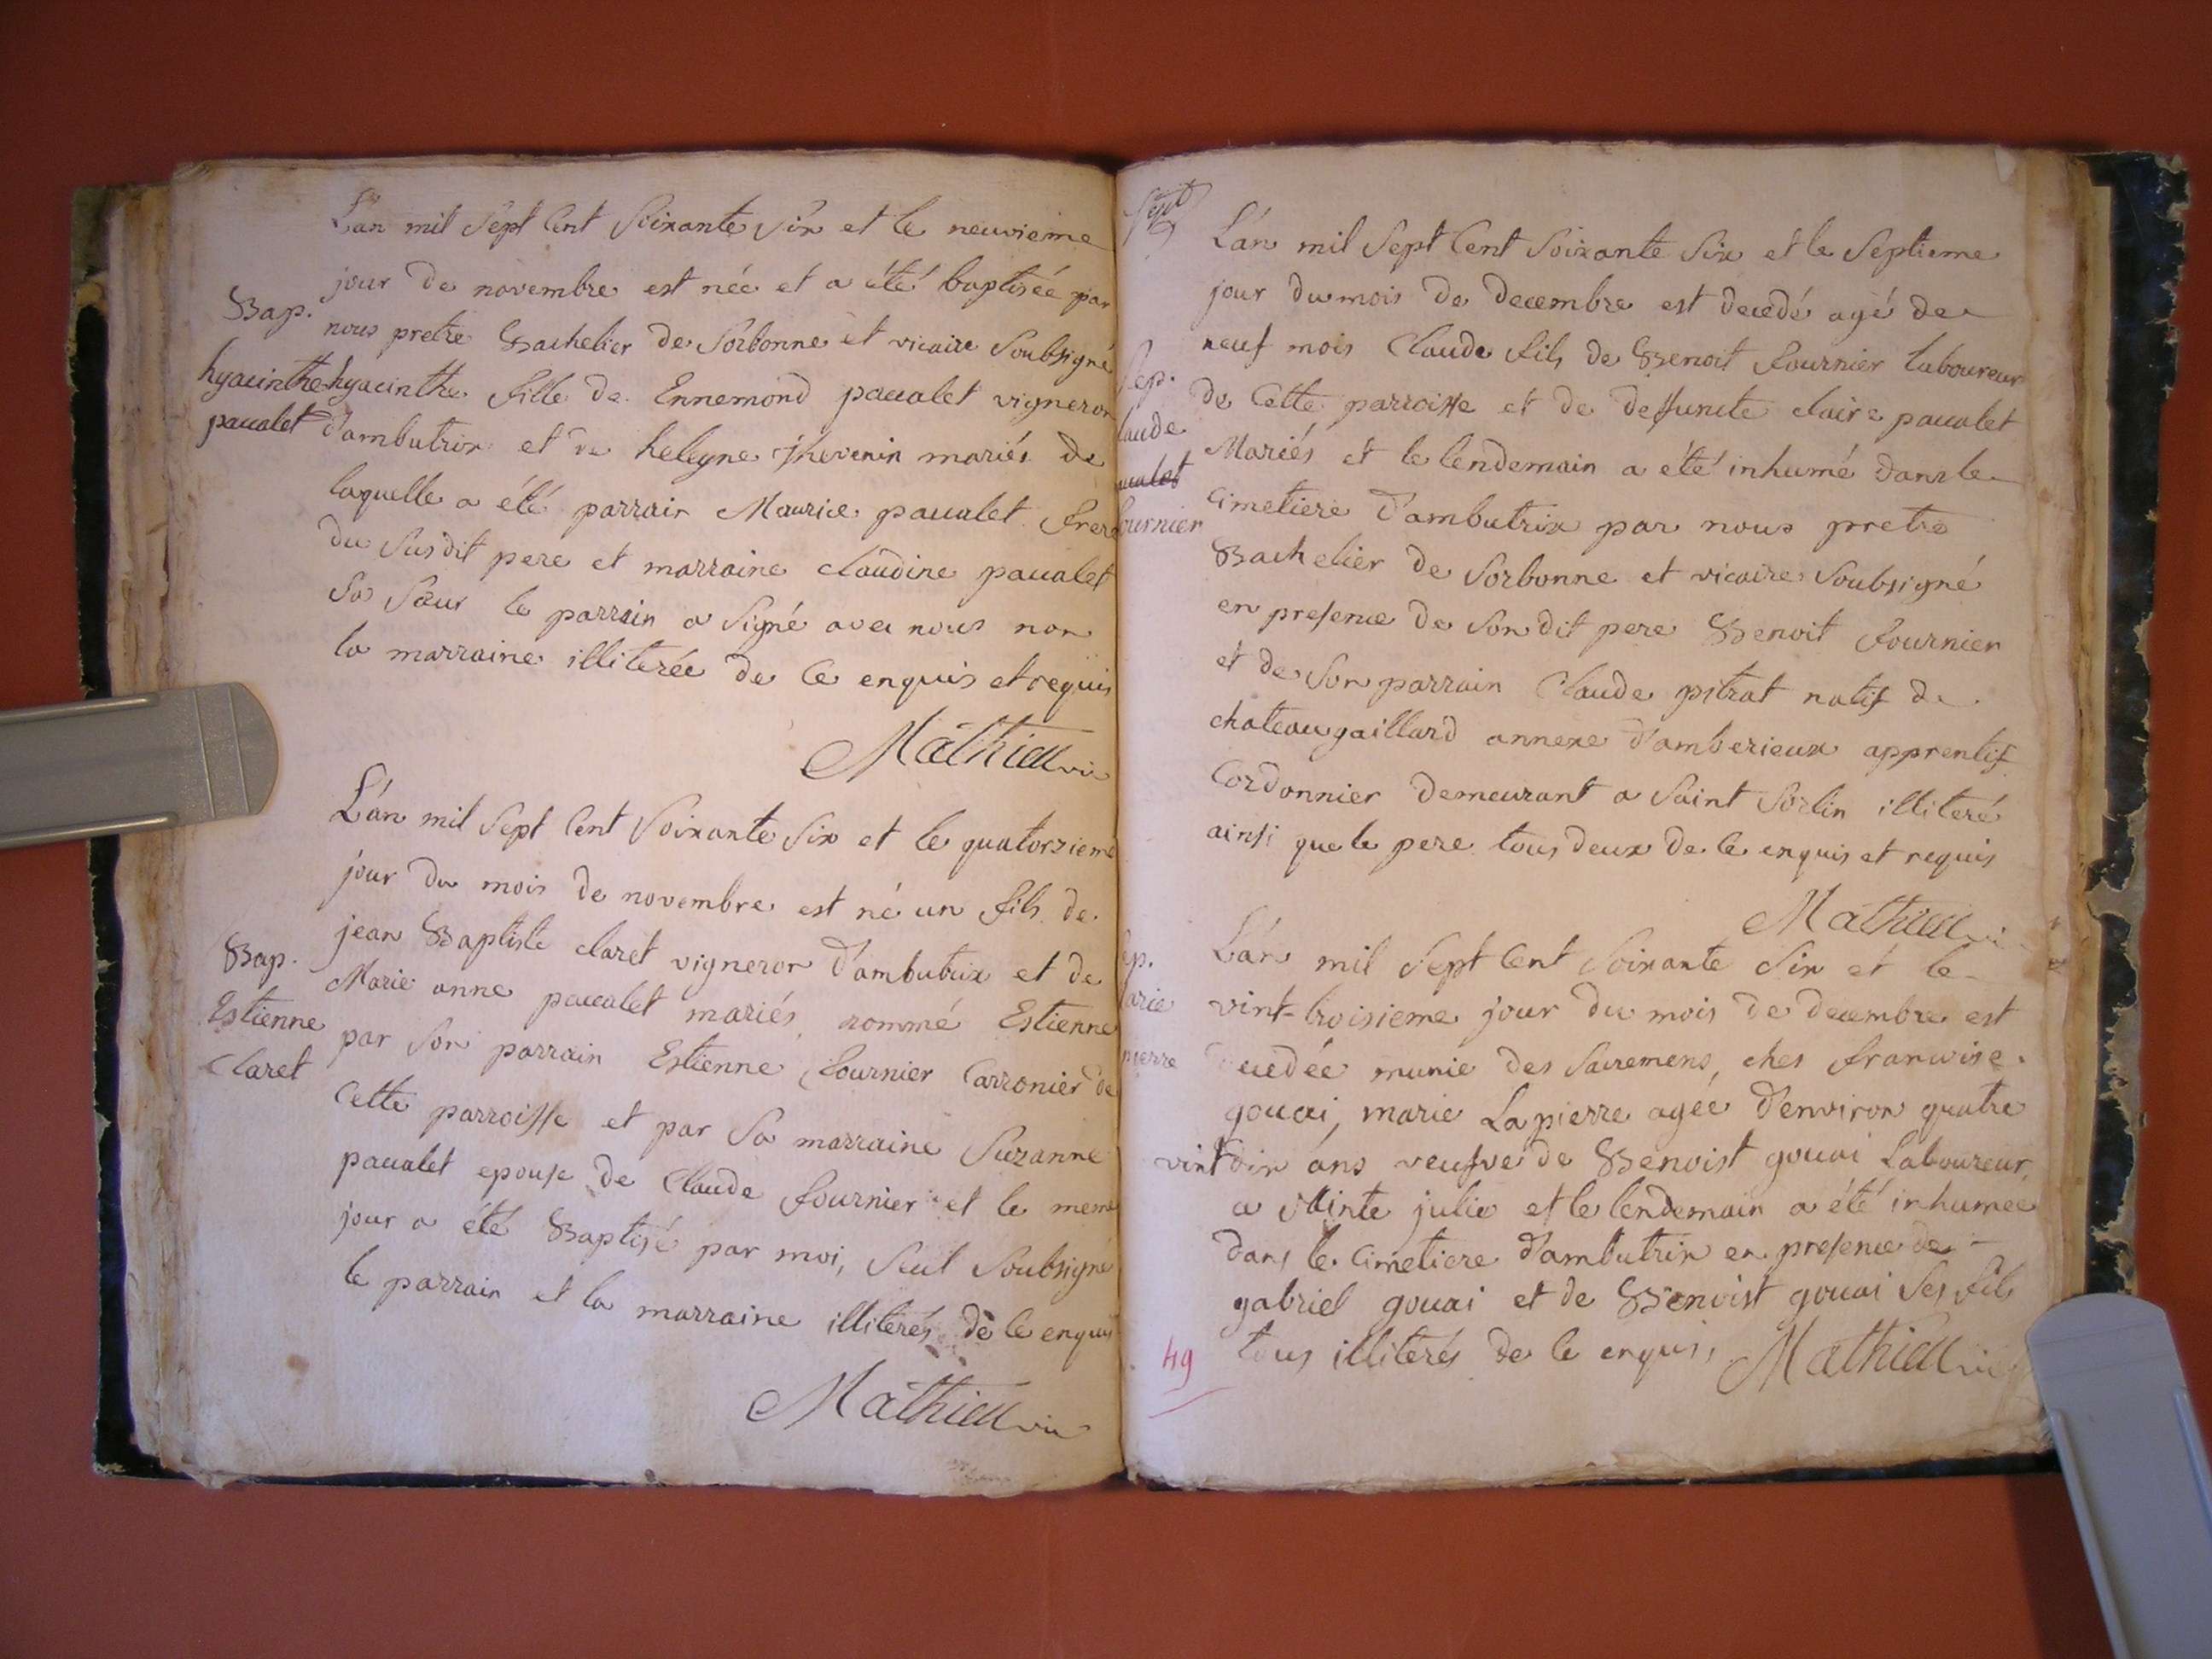 L'an mil Sept Cent Soixante Six et le neuvieme
jour de novembre est née et a été baptisée par
Bap.
nous pretre Bachelier de Sorbonne et vicaire Soubsigné
hyacinthe
hyacinthe fille de Ennemond paccalet vigneron
paccalet
d'ambutrix et de heleyne thevenin mariés de
laquelle a été parrain Maurice paccalet frere
du Susdit pere et marraine claudine paccalet
Sa Sœur le parrain a Signé avec nous non
la marraine illiterée de Ce enquis et requis
Mathieu vic
L'an mil Sept Cent Soixante Six et le quatorzieme
jour du mois de novembre est né un fils de
jean Baptiste claret vigneron d'ambutrix et de
Bap.
Marie anne paccalet mariés, nommé Estienne
Estienne
par Son parrain Estienne fournier Carronier de
Claret
Cette parroisse et par Sa marraine Suzanne
paccalet epouse de Claude fournier et le meme
jour a été Baptisé par moi, Seul Soubsigné
le parrain et la marraine illiterés de Ce enquis
Mathieu vic
L'an mil Sept Cent Soixante Six et le Septieme
jour du mois de decembre est decedé agé de
neuf mois Claude fils de Benoit fournier laboureur
Sep.
de Cette parroisse et de deffuncte claire paccalet
laude
Mariés et le lendemain a été inhumé dans le
ccalet
Cimetiere d'ambutrix par nous pretre
fournier
Bachelier de Sorbonne et vicaire Soubsigné
en presence de Son dit pere Benoit fournier
et de Son parrain Claude pitrat natif de
chateaugaillard annexe d'amberieux apprentif
Cordonnier demeurant a Saint Sorlin illiteré
ainsi que le pere tous deux de Ce enquis et requis
Mathieu vi
ep.
L'an mil Sept Cent Soixante Six et le
arie
vint-troisieme jour du mois de decembre est
pierre
decedée munie des Sacremens, ches francoise
gouai, marie Lapierre agée d'environ quatre
vint dix ans veufve de Benoist gouai Laboureur
a Sainte julie et le lendemain a été inhumée
dans le Cimetiere d'ambutrix en presence de
gabriel gouai et de Benoist gouai Ses fils
tous illiterés de Ce enquis, Mathieu vic
49